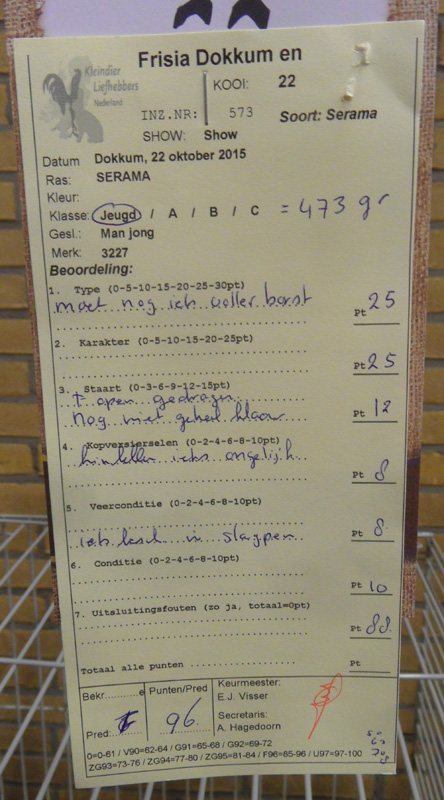 Frisia Dokkum en
Kleindier
Liefhebbers
Nederland
KOOI: 22
INZ.NR: 573
Soort: Serama
SHOW: Show
Datum Dokkum, 22 oktober 2015
Ras: SERAMA
Kleur:
Klasse: Jeugd / A / B / C = 473 gr
Gesl.: Man jong
Merk: 3227
Beoordeling:
1. Type (0-5-10-15-20-25-30pt)
moet nog iets voller borst
Pt 25
2. Karakter (0-5-10-15-20-25pt)
Pt 25
3. Staart (0-3-6-9-12-15pt)
t open gedragen
nog niet geheel klaar
Pt 12
4. Kopversierselen (0-2-4-6-8-10pt)
kinlellen iets ongelijk
Pt 8
5. Veerconditie (0-2-4-6-8-10pt)
in slagpen
Pt 8
6. Conditie (0-2-4-6-8-10pt)
Pt 10
7. Uitsluitingsfouten (zo ja, totaal=0pt)
Pt 88
Totaal alle punten
Pt
Bekr.........e
Punten/Pred
Keurmeester:
E.J. Visser
Pred: F
96
Secretaris:
A. Hagedoorn
0=0-61 / V90=62-64 / G91=65-68 / G92=69-72
ZG93=73-76 / ZG94=77-80 / ZG95=81-84 / F96=85-96 / U97=97-100